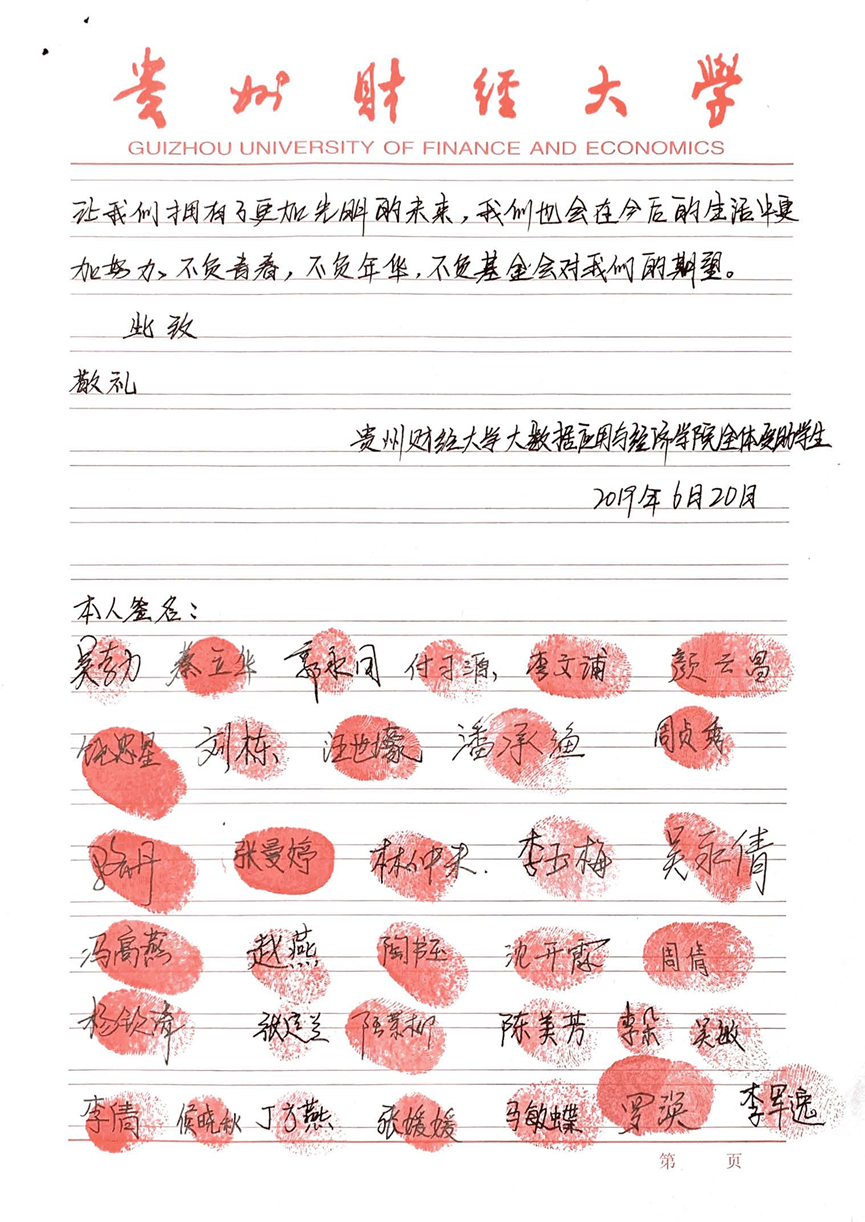 贵州财经大学
GUIZHOU UNIVERSITY OF FINANCE AND ECONOMICS
让我们拥有了更加光明的未来,我们也会在今后的生活中更
加努力、不负青春,不负年华,不负基金会对我们的期望。
此致
敬礼
贵州财经大学大数据应用与经济学院全体受助学生
2019年6月20日
本人签名:
蔡立华 郭永同 付习源, 李文诵 颜云昌
刘栋 汪也壕 潘承渔 周贞秀
张曼婷 林仲来. 李玉梅 吴永倩
冯高燕 赵燕 陶书玉 沈开霖 周倩
杨钦涛 陈美芳 李朵 吴敏
李倩 侯晓秋 丁方燕 张媛媛 马敏蝶 罗英 李军逸
第 页